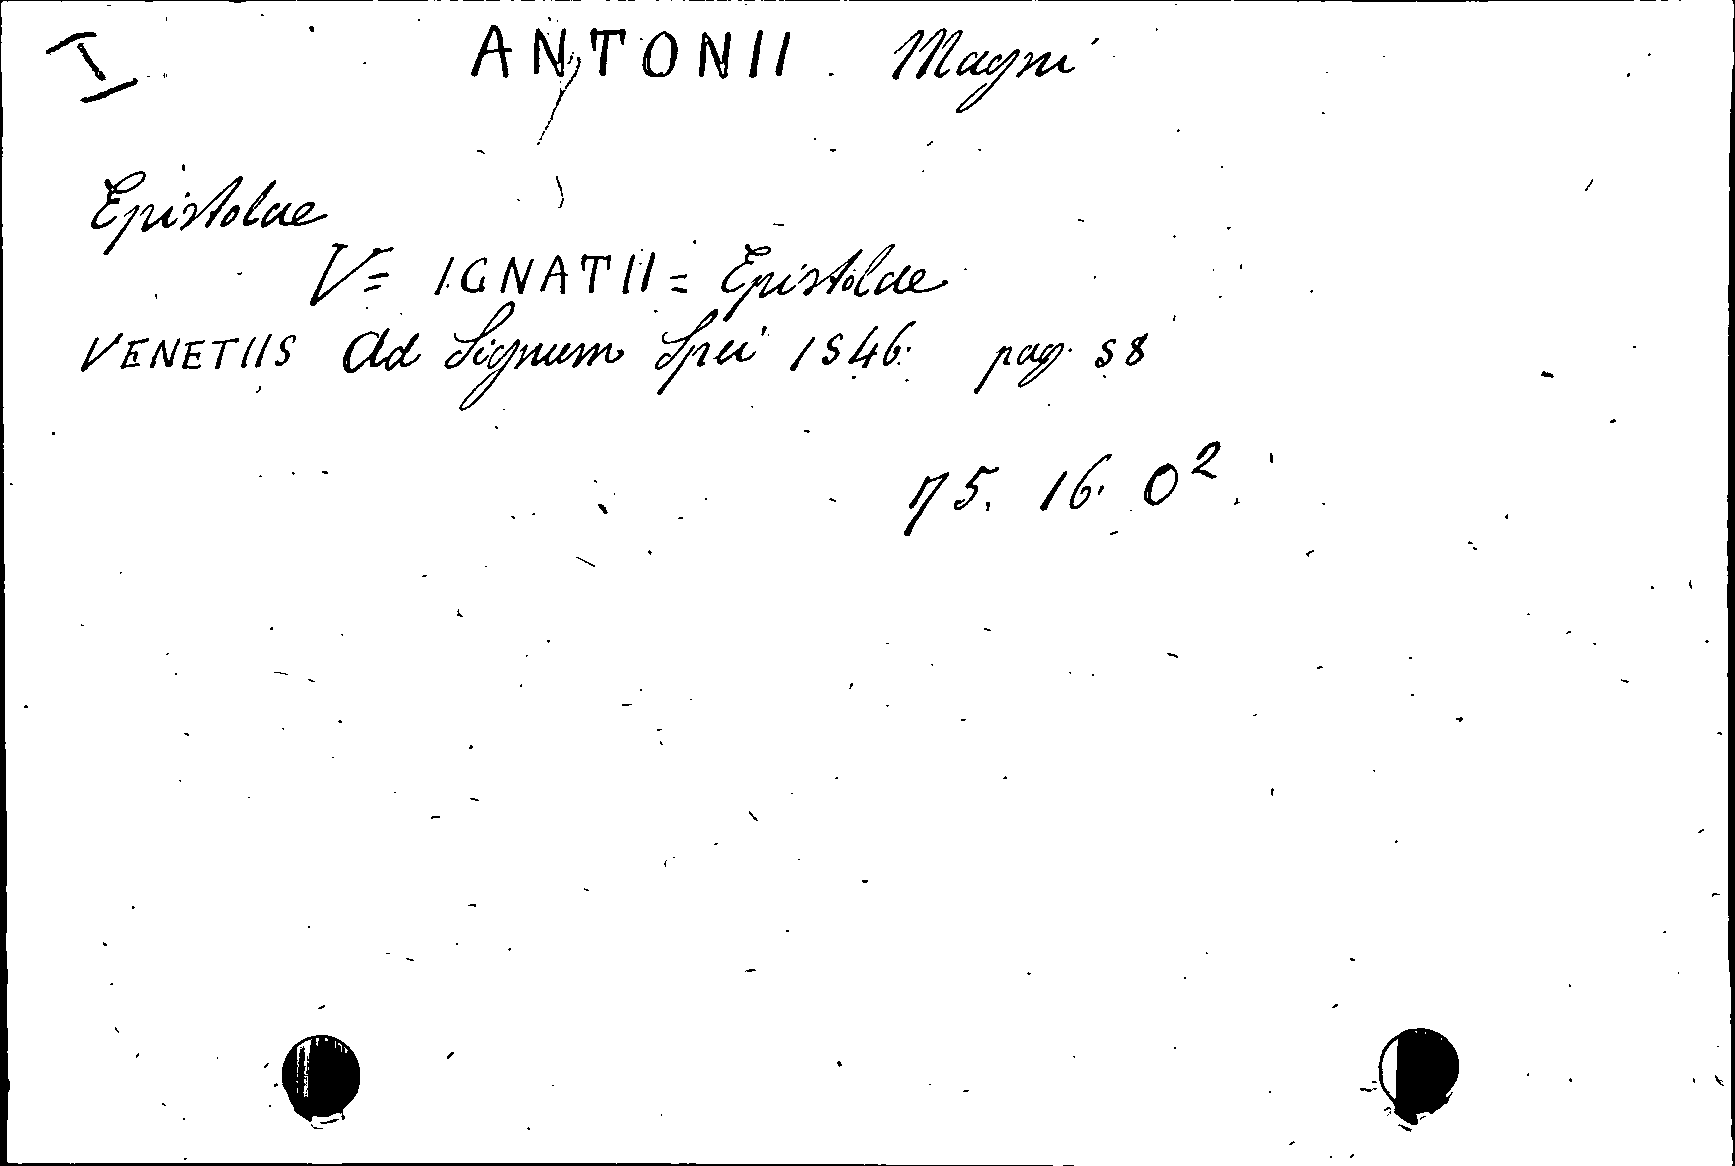 I ANTONII Magni
Epistolae
V= IGNATII= Epistolae
VENETIIS Ad Signum Spei 1546. pag. 58
75. 16. O²